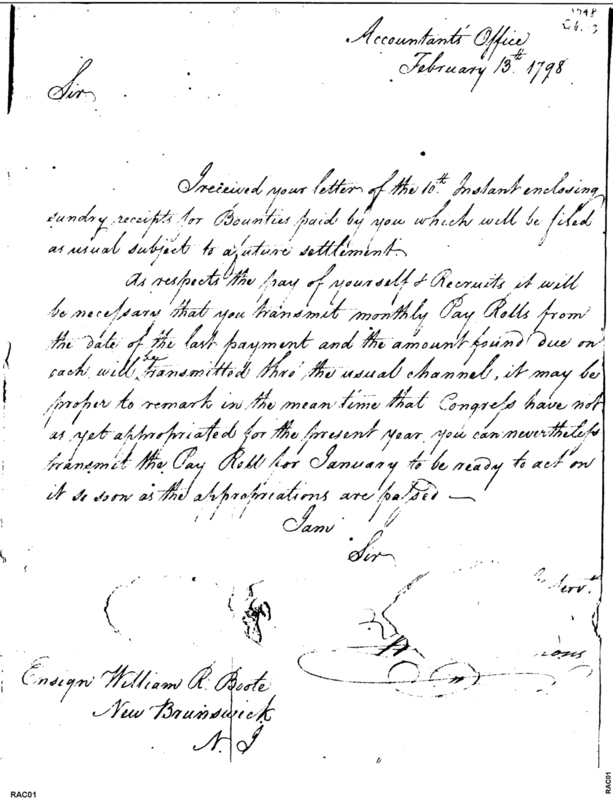 1798
Accountant's Office
February 13th. 1798
Sir
I received your letter of the 10th. Instant enclosing
sundry receipts for Bounties paid by you which will be filed
as usual subject to a future settlement
As respects the pay of yourself & Recruits it will
be necessary that you transmit monthly Pay Rolls from
the date of the last payment and the amount found due on
each will be transmitted thro' the usual channel, it may be
proper to remark in the mean time that Congress have not
as yet appropriated for the present year, you can nevertheless
transmit the Pay Roll for January to be ready to act on
it so soon as the appropriations are passed —
I am
Sir
Servt.
Ensign William R. Boote
New Brunswick
N. J
RAC01
RAC01